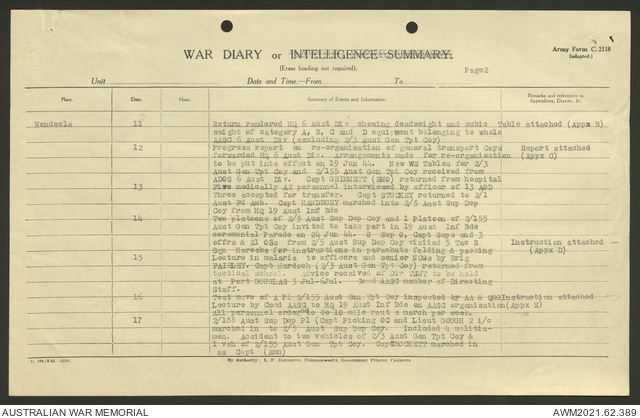 WAR DIARY or INTELLIGENCE SUMMARY.
Army Form C. 2118
(adapted.)
(Erase heading not required).
Page2
Unit Date and Time.—From To
Place. Date. Hour. Summary of Events and Information. Remarks and references to Appendices, Diaries, &c.
Wondecla 11 Return rendered HQ 6 Aust Div showing deadweight and cubic Table attached (Appx B)
weight of category A, B, C and D equipment belonging to whole
AASC 6 Aust Div (excluding 2/3 Aust Gen Tpt Coy)
12 Progress report on re-organisation of general transport Coys Report attached
forwarded HQ 6 Aust Div. Arrangements made for re-organisation (Appx C)
to be put into effect on 19 Jun 44. New WE Tables for 2/3
Aust Gen Tpt Coy and 2/155 Aust Gen Tpt Coy received from
ADOS 6 Aust Div. Capt returned from hospital
13 Five medically A2 personnel interviewed by officer of 13 AOD
Three accepted for transfer. Capt STUCKEY returned to 2/1
Aust Fd Amb. Capt HANDBURY marched into 2/5 Aust Sup Dep
Coy from HQ 19 Aust Inf Bde
14 Two platoons of 2/5 Aust Sup Dep Coy and 1 Platoon of 2/155
Aust Gen Tpt Coy invited to take part in 19 Aust Inf Bde
ceremonial Parade on 24 Jun 44. S Sup O, Capt Sups and 3
offrs & 21 OSs from 2/5 Aust Sup Dep Coy visited 5 Tac R Instruction attached
Sqn Mareeba for instructions in parachute folding & packing (Appx D)
15 Lecture in malaria to officers and senior NCOs by Brig
FAIRLEY. Capt Murdoch (2/3 Aust Gen Tpt Coy) returned from
tactical school. Advice received of Div TEWT to be held
at Port DOUGLAS 3 Jul-6Jul. Comd AASC member of Directing
Staff.
16 Test move of A Pl 2/155 Aust Gen Tpt Coy inspected by AA & QMG Instruction attached
Lecture by Comd AASC to HQ 19 Aust Inf Bde on AASC organisation (Appx E)
All personnel ordered to do 10 mile route march per week.
17 2/188 Aust Sup Dep Pl (Capt Picking OC and Lieut GOUGH 2 i/c
marched in to 2/5 Aust Sup Dep Coy. Included 4 militia-
men. Accident to two vehicles of 2/3 Aust Gen Tpt Coy &
1 veh of 2/155 Aust Gen Tpt Coy. Capt CROCKETT marched in
as Capt (Amn)
By Authority: L. F. Johnston, Commonwealth Government Printer, Canberra.
AUSTRALIAN WAR MEMORIAL
AWM2021.62.389